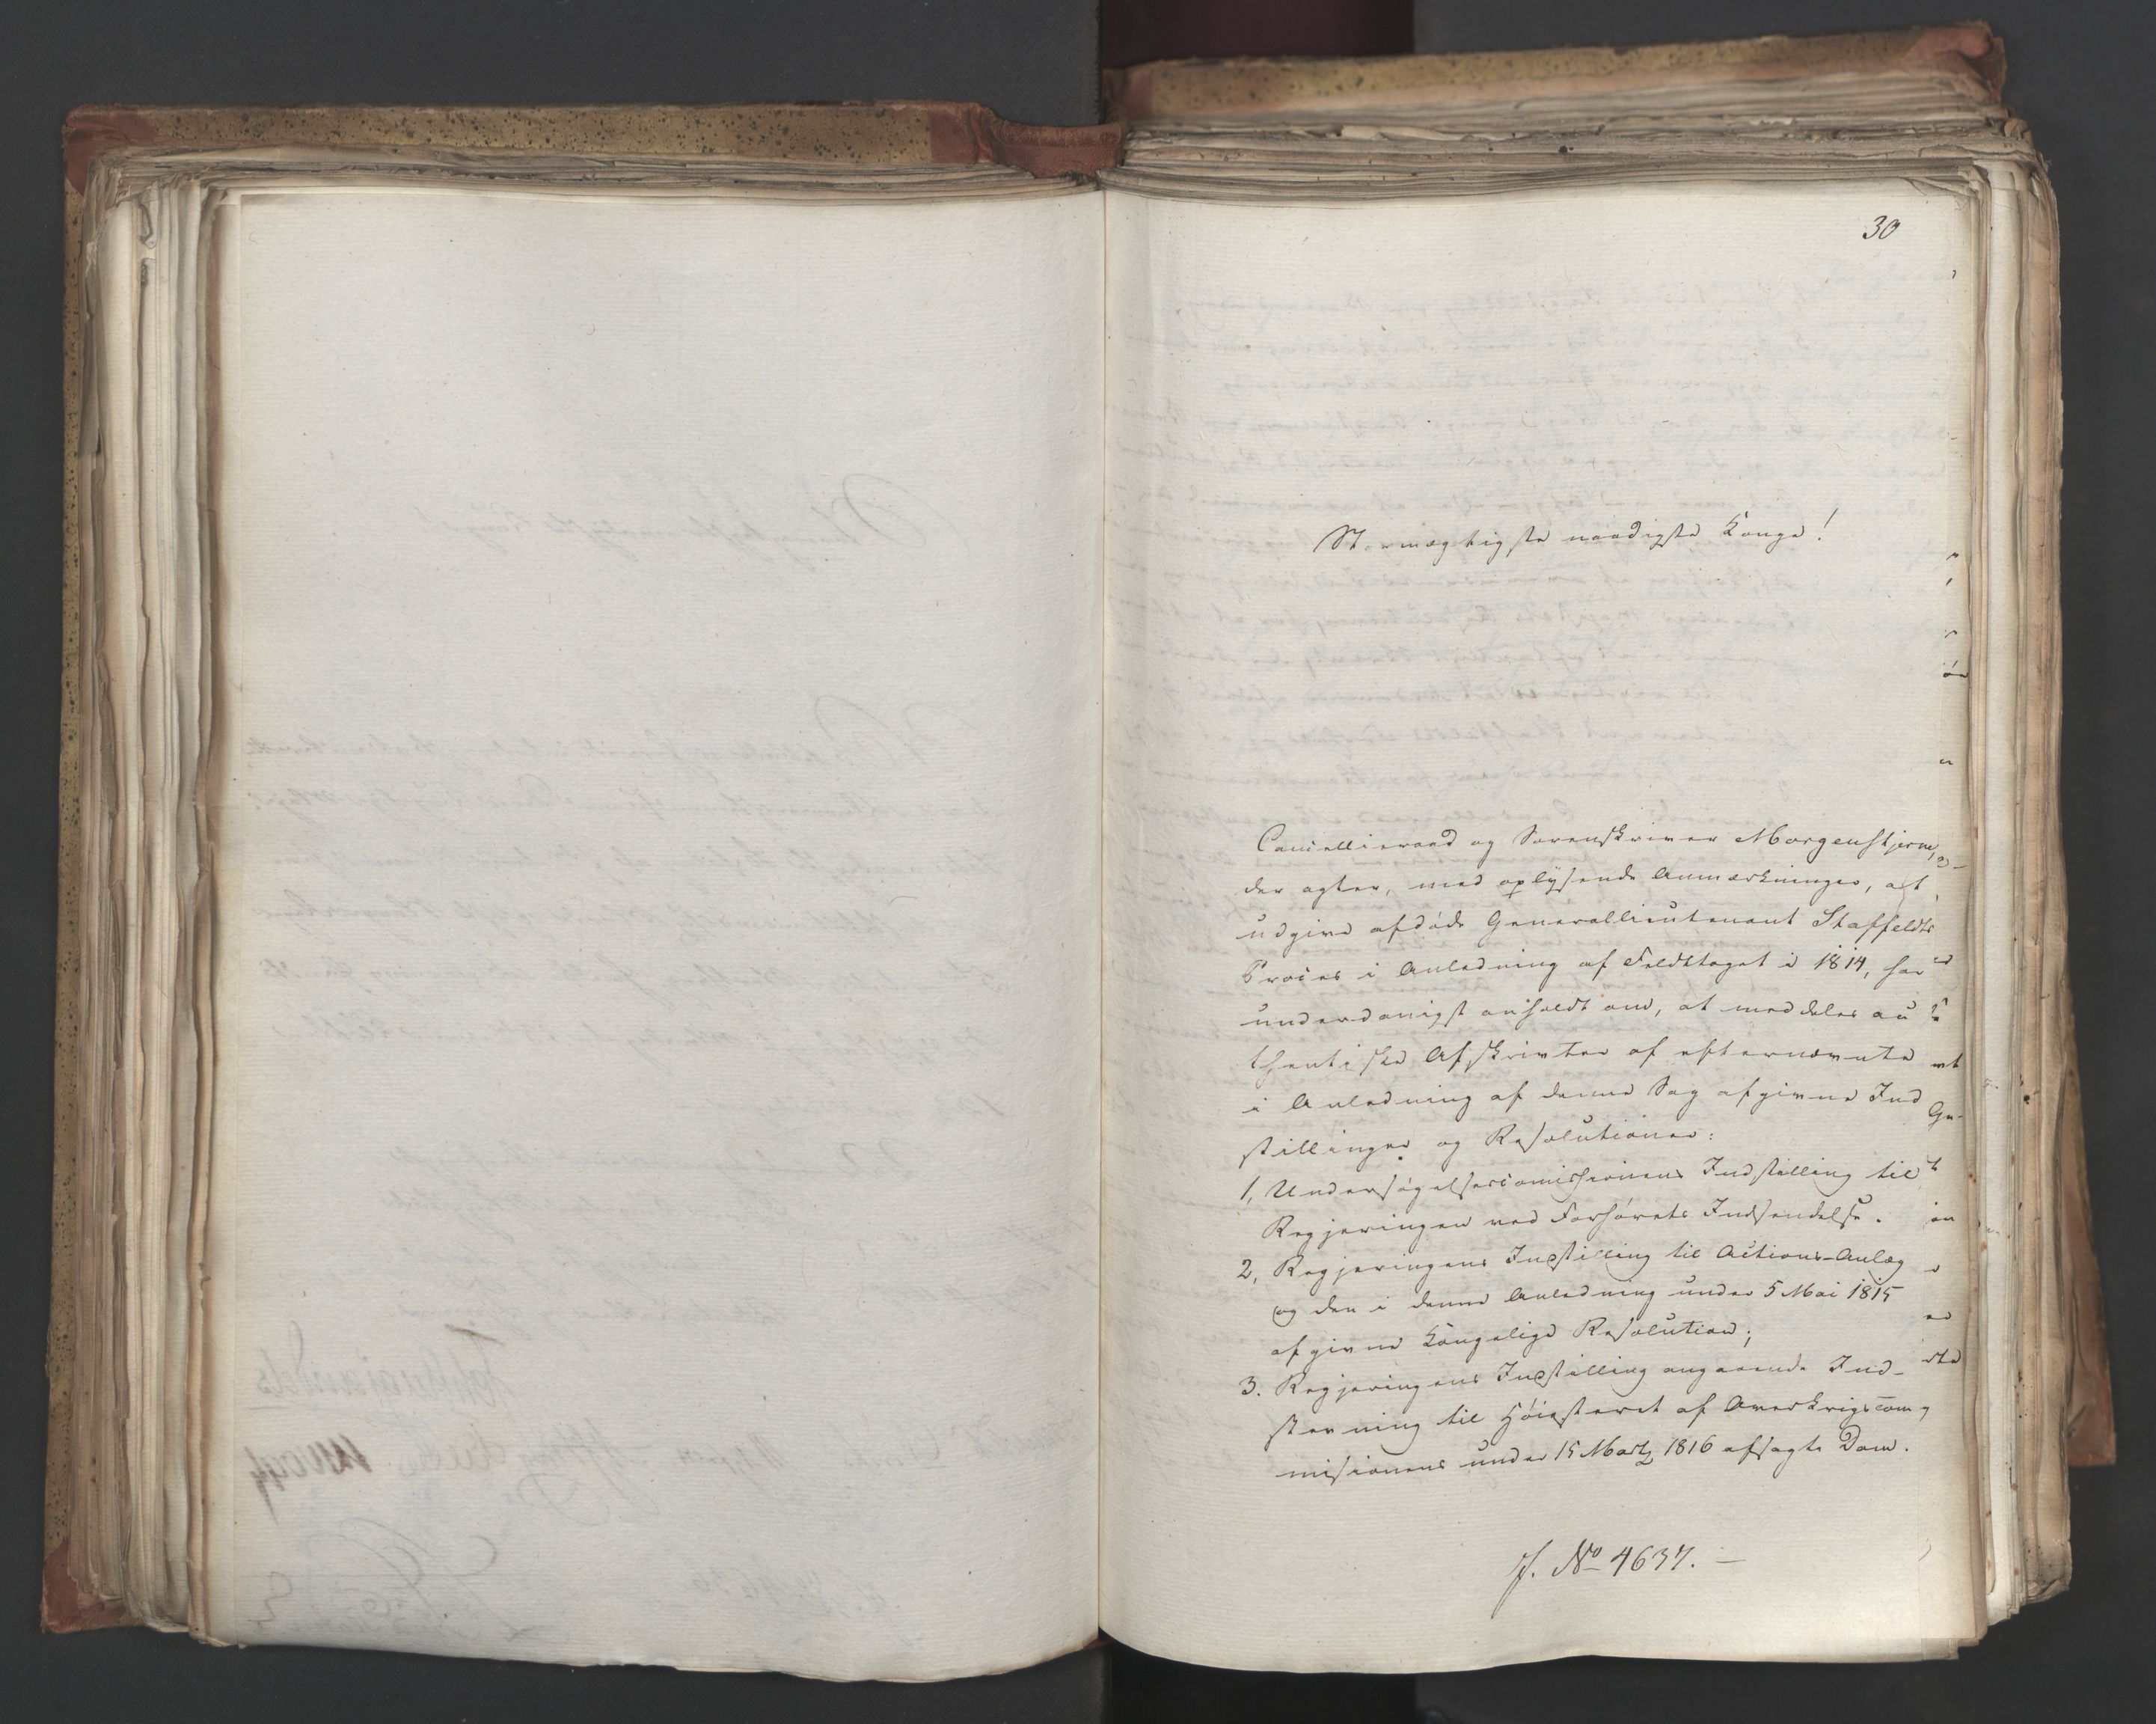 30
Stormægtigste naadigste Konge!
Cancellieraad og Sorenskriver Morgenstjerne,
der agter, med oplysende Anmærkninger, at
udgive afdøde Generallieutenant Staffeldts
Proces i Anledning af Feldttoget i 1814, har
underdanigst anholdt om, at meddeles au
thentiske Afskrivter af efternævnte
i Anledning af denne Sag afgivne Ind
stillinger og Resolutioner:
1, Undersøgelsescomissionens Indstilling til
Regjeringen ved Forhørets Indsendelse.
2, Regjeringens Indstilling til Actions-Anlæg
og den i denne Anledning under 5 Mai 1815
afgivne Kongelige Resolution;
3. Regjeringens Indstilling angaaende Ind-
stevning til Høiesteret af Overkrigscom̅
misionens under 15 Martz 1816 afsagte Dom.
J. No 4637. —